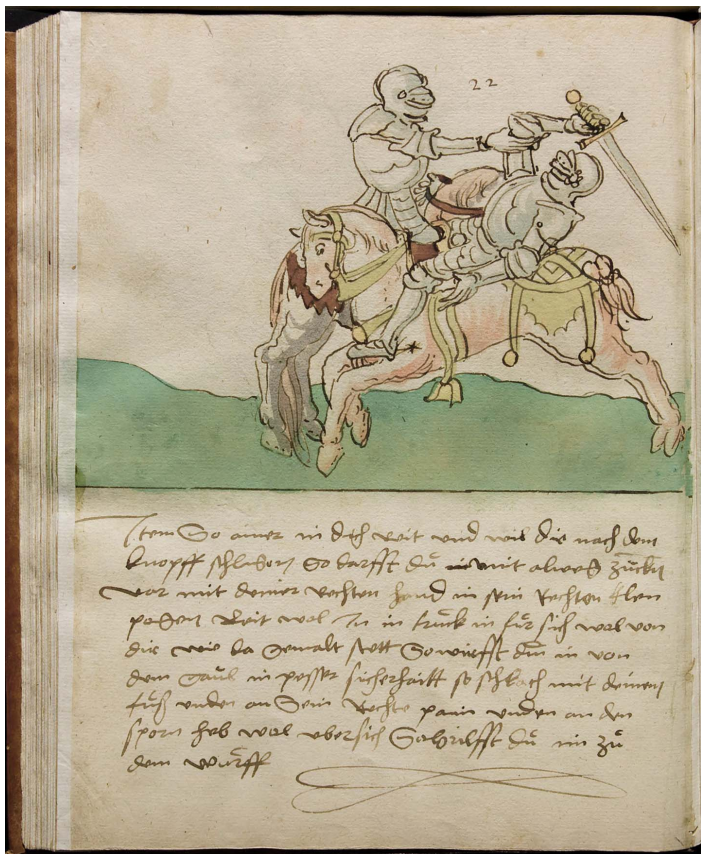 22
Item So ainer in dich reit und wil dir nach dem
knopff schlahen So darfft du mit alweg zucken
var mit deiner rechten hand in sein rechten Elen
pogen Reit wol In in truck in für sich wol von
dir wie da gemalt stett So wirfft du in von
dem gaul in posser sicherhaitt so schlach mit deinem
fuß unden an Sein Rechte pain unden an den
sporn heb wol ubersich So hilfft du im zu
dem wurff